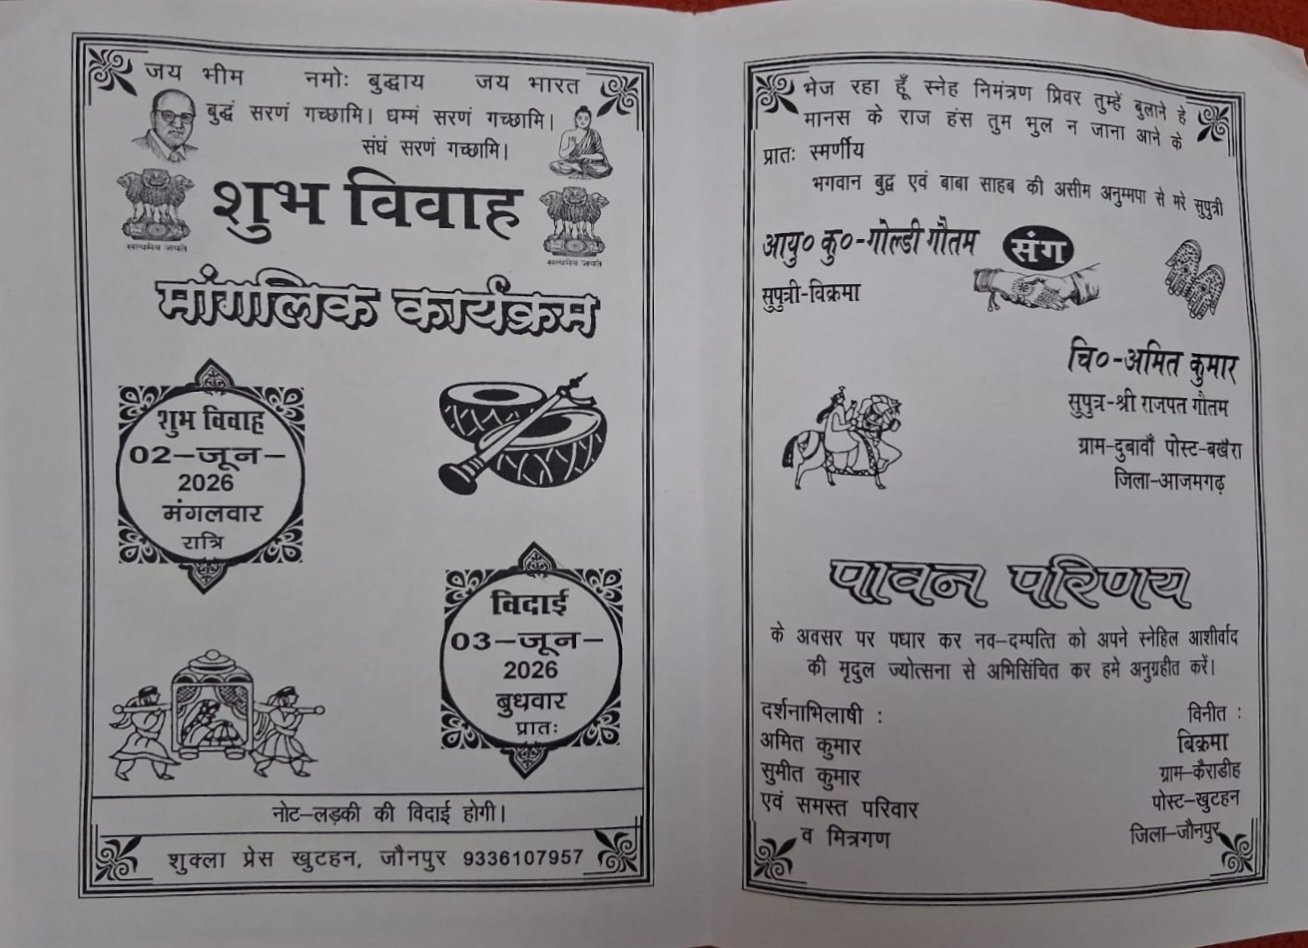 जय भीम नमोः बुद्धाय जय भारत
बुद्धं सरणं गच्छामि। धम्मं सरणं गच्छामि।
संघं सरणं गच्छामि।
सत्यमेव जयते
सत्यमेव जयते
शुभ विवाह
मांगलिक कार्यक्रम
शुभ विवाह
02–जून–
2026
मंगलवार
रात्रि
विदाई
03–जून–
2026
बुधवार
प्रातः
नोट–लड़की की विदाई होगी।
शुक्ला प्रेस खुटहन, जौनपुर 9336107957
भेज रहा हूँ स्नेह निमंत्रण प्रिवर तुम्हें बुलाने हे
मानस के राज हंस तुम भुल न जाना आने के
प्रातः स्मर्णीय
भगवान बुद्व एवं बाबा साहब की असीम अनुम्मपा से मरे सुपुत्री
आयु० कु०-गोल्डी गौतम
संग
सुपुत्री-विक्रमा
चि०-अमित कुमार
सुपुत्र-श्री राजपत गौतम
ग्राम-दुबावाँ पोस्ट-बखैरा
जिला-आजमगढ़
पावन परिणय
के अवसर पर पधार कर नव-दम्पत्ति को अपने स्नेहिल आशीर्वाद
की मृदुल ज्योत्सना से अभिसिंचित कर हमे अनुग्रहीत करें।
दर्शनाभिलाषी :
अमित कुमार
सुमीत कुमार
एवं समस्त परिवार
व मित्रगण
विनीत :
बिक्रमा
ग्राम-कैराडीह
पोस्ट-खुटहन
जिला-जौनपुर